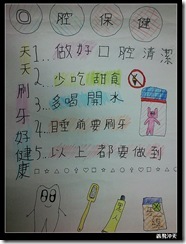 口腔保健
天天刷牙好健康
1...做好口腔清潔
2...少吃甜食
3...多喝開水
4...睡前要刷牙
5...以上都要做到